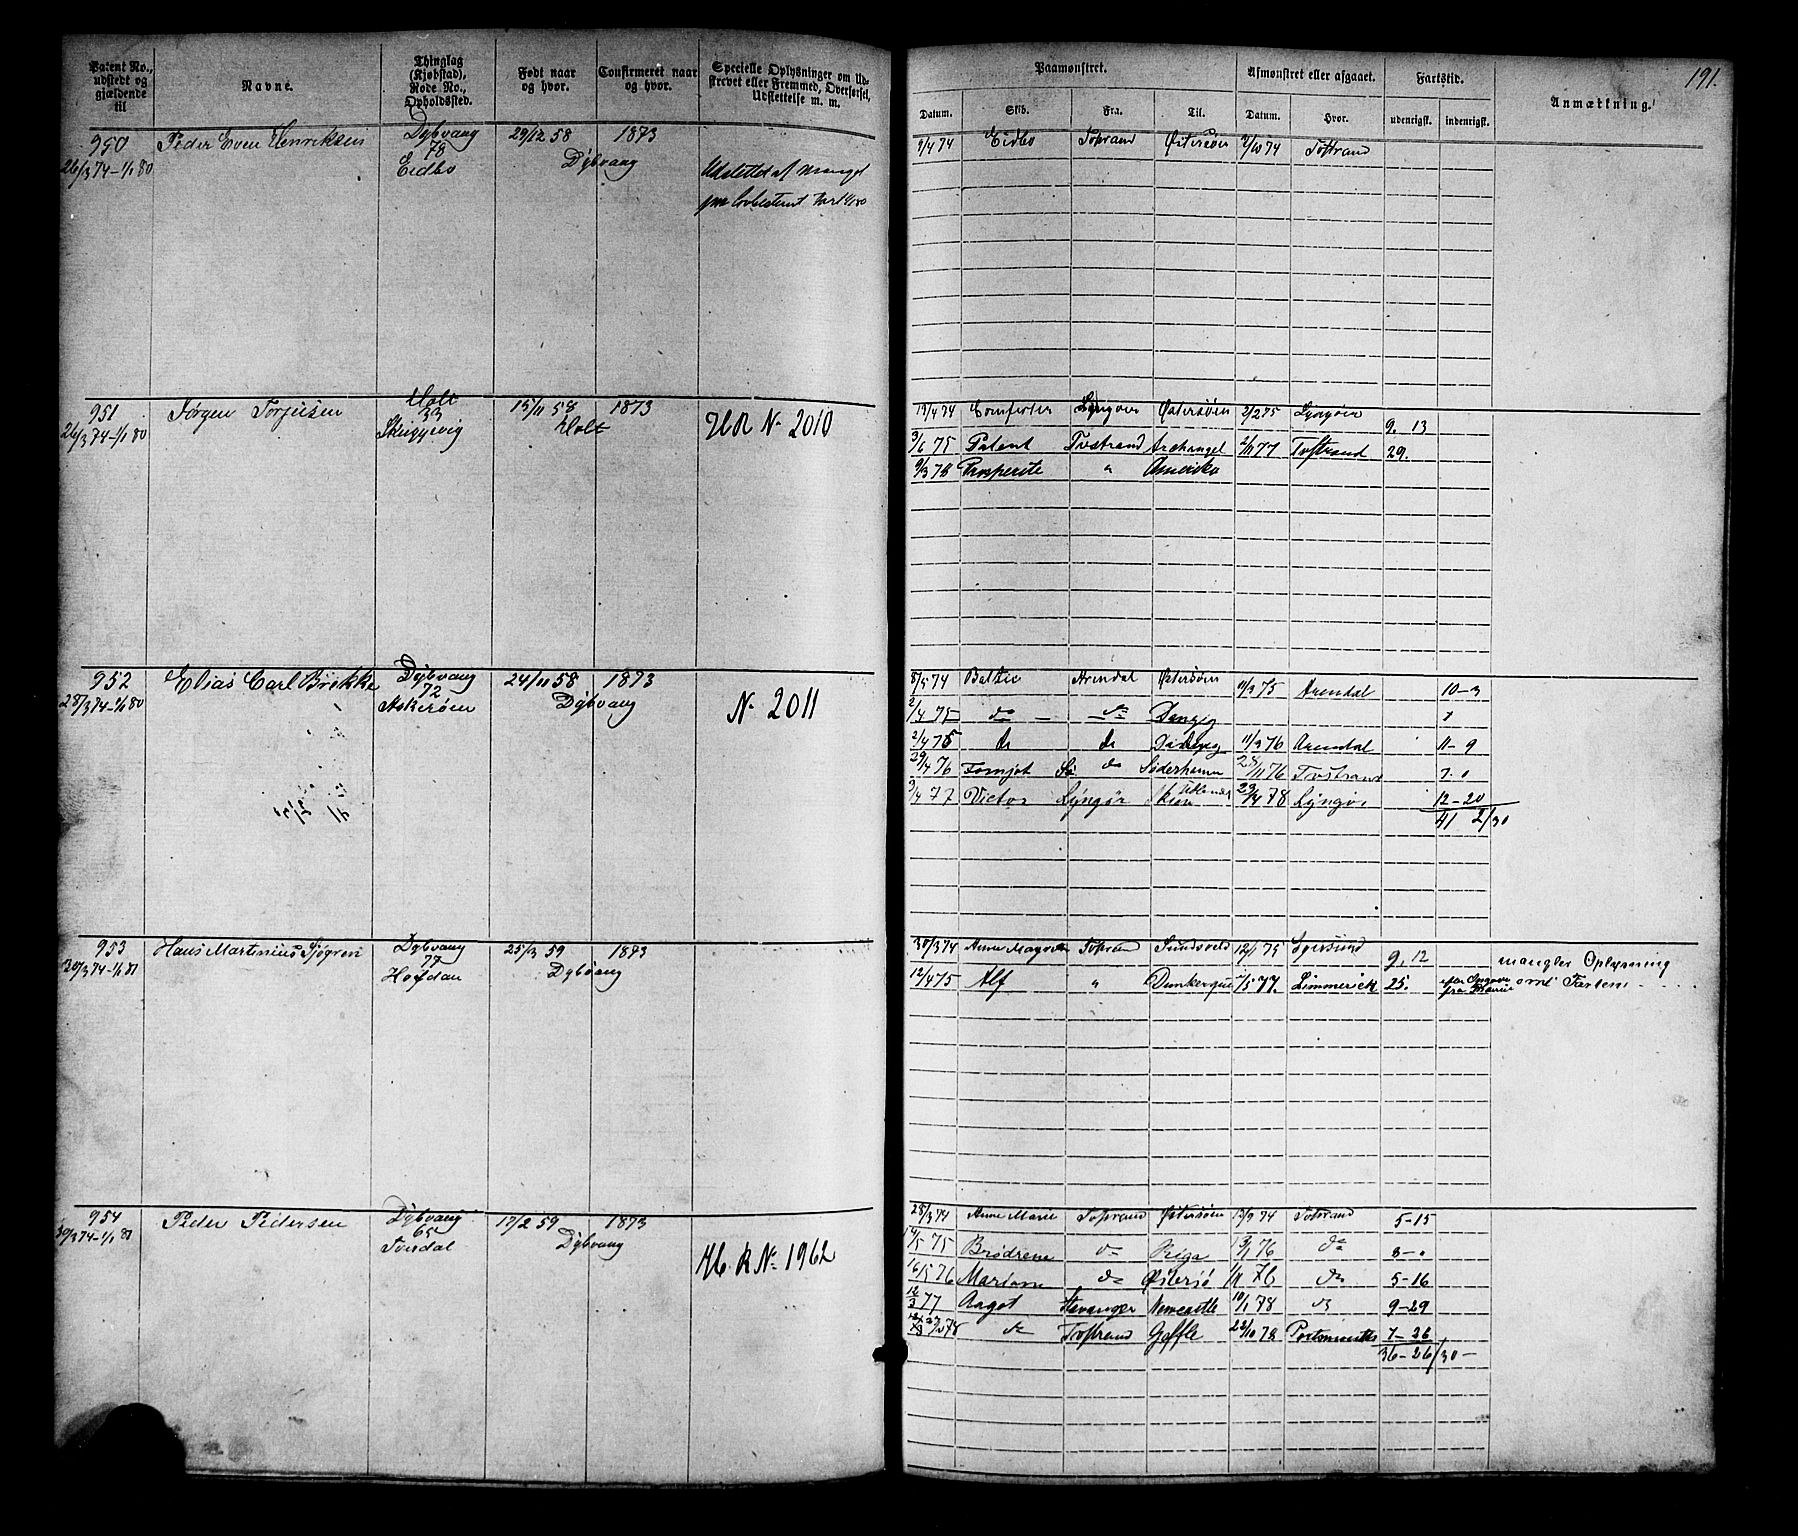 191.
Patent No., udstedt og gjældende til
Navne.
Thinglag (Kjøbstad), Rode No., Opholdssted.
Født naar og hvor.
Confirmeret naar og hvor.
Specielle Oplysninger om Udskrevet eller Fremmed, Overførsel, Udslettelse m. m.
Paamønstret.
Afmønstret eller afgaaet.
Fartstid.
Anmærkning.
Datum. Skib. Fra. Til. Datum. Hvor. udenrigsk. indenrigsk.
950 Peder Even Henriksen Dybvang 29/12 58 1873
26/3 74-1/1 80 78 Dybvang
Eidbo
Udslettet af Mangel
9/4 74 Eidbo Tvstrand Østersøen 2/10 74 Tvstrand
951 Jørgen Torjusen Holt 15/11 58 1873
26/3 74-1/1 80 33 Holt HR No 2010
Skuggevig
13/4 74 Comforter Lyngøer Østersøen 2/2 75 Lyngøer 9. 13
3/6 75 Patent Tvstrand Archangel 2/11 77 Tvstrand 29.
9/3 78 Prosperite " Amerika
952 Elias Carl Brekke Dybvang 24/11 58 1873
28/3 74-1/1 80 72 Dybvang No 2011
Askerøen
8/5 74 Baltic Arendal Østersøen 11/3 75 Arendal 10-3
2/4 75 do do Danzig
2/4 75 do do 11/3 76 Arendal 11-9
29/4 76 Fornjot do Söderhamn 28/11 76 Tvstrand 7.0
3/4 77 Victor Lyngör Skien 29/4 78 Lyngör 12-20
41 2/30
953 Hans Martinius Sjøgren Dybvang 25/3 59 1873
30/3 74-1/1 81 77 Dybvang
Hofdan
30/3 74 Tvstrand Sundsvald 12/1 75 9, 12 mangler Oplysning
12/4 75 Alf " Dunkerque 1/5 77. Limmerick 25. efter Opgave fra om Farten
954 Peder Pedersen Dybvang 17/2 59 1873
30/3 74-1/1 81 65 Dybvang
Tverdal H. R No 1962
28/3 74 Anne Marie Tvstrand Østersøen 13/9 74 Tvstrand 5-15
14/5 75 Brødrene do Riga 3/1 76 do 8-0
16/5 76 Mariane do Østersø 1/11 76 do 5-16
12/3 77 Aagot Stavanger Newcastle 10/1 78 do 9-29
do Tvstrand Geffle 22/10 78 Portsmouth 7-26
36-26/30